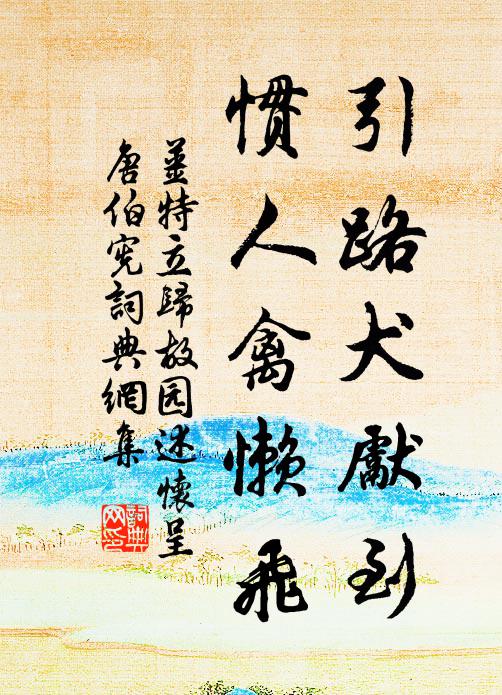 引路犬獻到
慣人禽懶飛
姜特立歸故园述懷呈
唐伯宪詞典網集